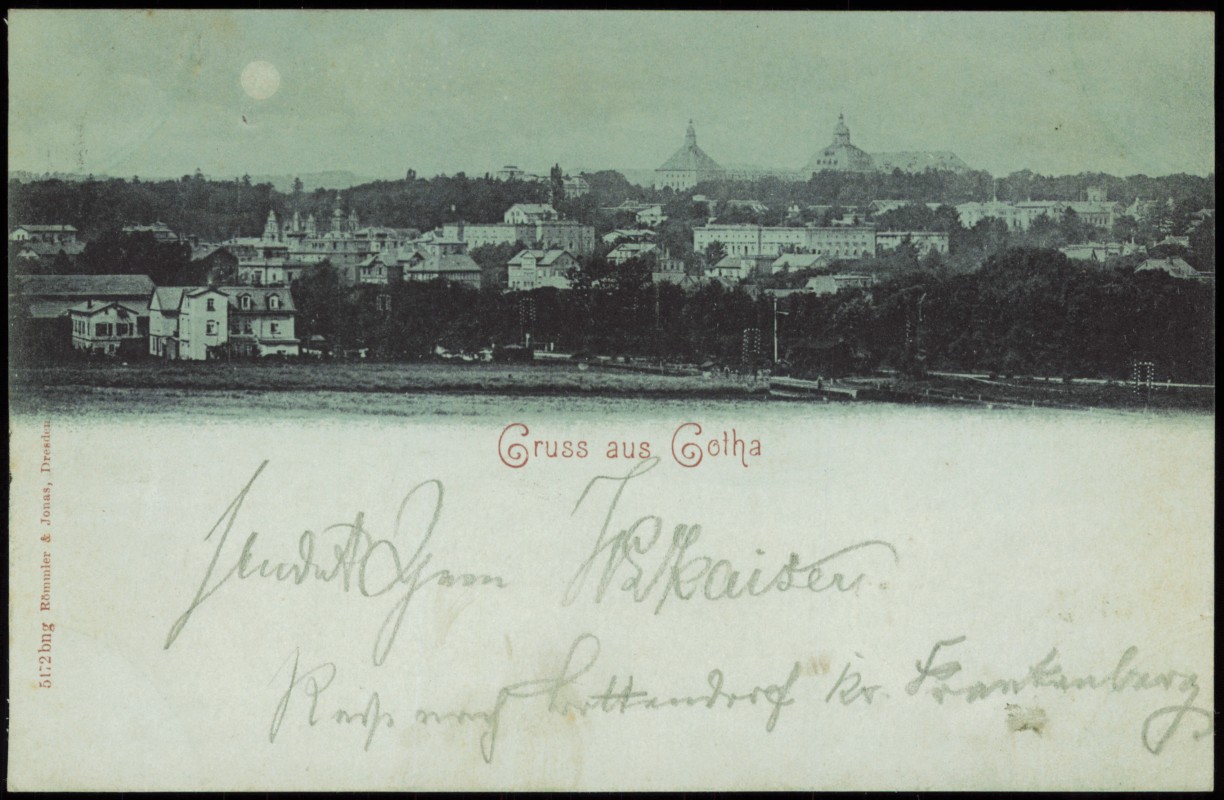 Gruss aus Gotha
sendet Ihnen W. Kaiser.
Reise nach Bottendorf Kr. Frankenberg
5172bng Römmler & Jonas, Dresden